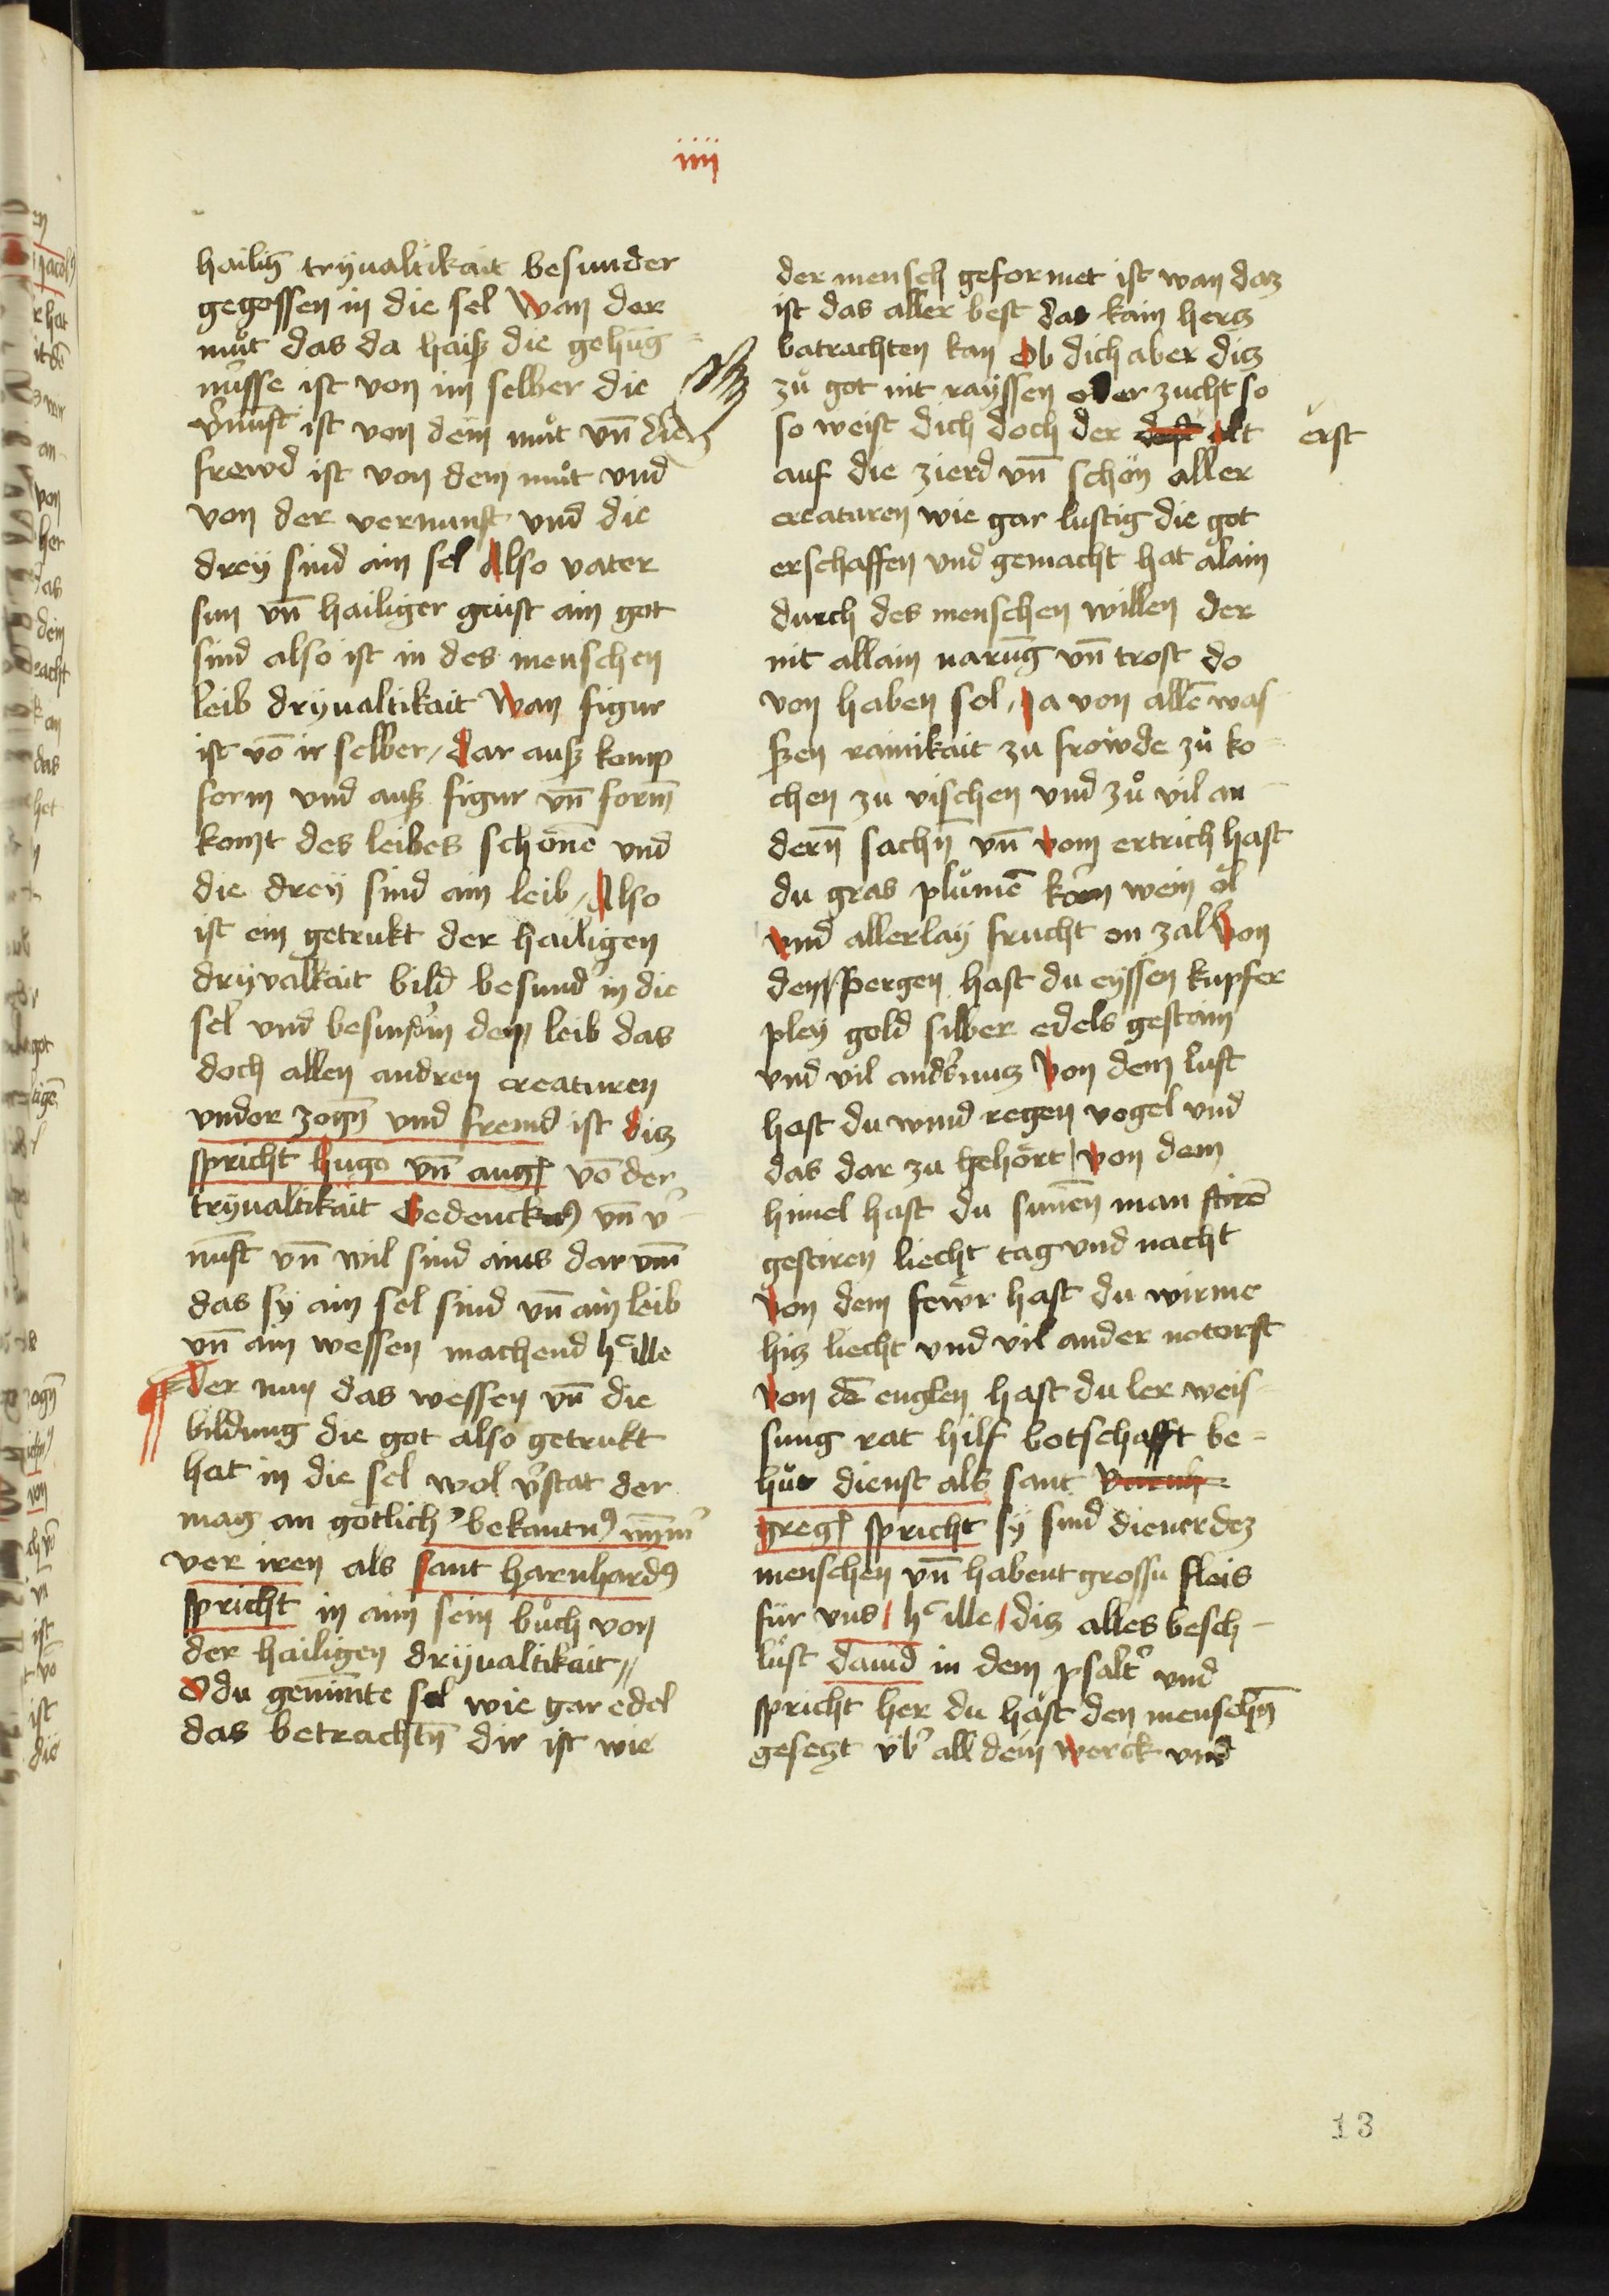 iiij
hailīg tryualtikait besunder
gegossen in die sel Wan der
muͦt das da haiß die gehug
nuͤsse ist von im selber die
v̓nunft ist von dem muͦt vn̄ die
frewd ist von dem muͦt vnd
von der vernunft vnd die
dreÿ sind ain sel Also vater
sun vn̄ hailiger gaist ain got
sind also ist in des menschen
leib drÿualtikait Wan figur
ist vō ir selber / dar auß komp
form vnd auß figur vn̄ form̄
komt des leibes schönē vnd
die dreÿ sind ain leib / Also
ist ein getrukt der hailigen
drÿvalkait bild besund̓ in die
sel vnd besund̓ in dem leib das
doch allen andren creaturen
vndor zogn̄ vnd fremd ist diz
spricht hugo vn̄ aug9 vō der
trÿualtikait Gedencknꝰ vn̄ v̓
nuft vn̄ wil sind ains dar vm̄
das sÿ ain sel sind vn̄ ain leib
vn̄ ain wessen machend hͨ ille
Der nun das wessen vn̄ die
bildung die got also getrukt
hat in die sel wol v̓stat der
mag an götlich̓ bekantnꝰ nym̄̓
ver iren als sant harnhardꝰ
spricht in aim sein buͦch von
der hailigen drÿualtikait //
O du genimte sel wie gar edel
das betrachtn̄ dir ist wie
der mensch geformet ist wan daz
ist das aller best das kain hertz
batrachten kan Ob dich aber diz
zuͦ got nit raÿssen oder zucht so
so weist dich doch der alt erst
auf die zierd vn̄ schön aller
creaturen wie gar lustig die got
erschaffen vnd gemacht hat alain
durch des menschen willen der
nit allain narūg vn̄ trost do
von haben sol / Ja von allē was
ßen rainikait zu froͤwde zuͦ ko
chen zu vischen vnd zuͦ vil an
dern̄ sachn̄ vn̄ vom ertrich hast
du gras pluͦmē korn wein öl
vnd allerlaÿ frucht on zal Von
den pergen hast du eÿssen kupfer
pleÿ gold silber edels gestain
vnd vil and̓ nutz Von dem luft
hast du wind regen vogel vnd
das dar zu gehört / Von dem
himel hast du sunen̄ man stirē
gestiren liecht tag vnd nacht
Von dem fewr hast du wirme
hiz liecht vnd vil ander notorft
Von dē englen hast du ler weis
sung rat hilf botschafft be-
huͦt dienst als sant
greg9 spricht sÿ sind diener dez
menschen vn̄ habent grossn fleis
für vns / hͨ ille / diz alles besch-
luͤst dauid in dem psalt̓ vnd
spricht her du hast den menschn̄
gesetzt vͤb̓ all dein werck vnd
13